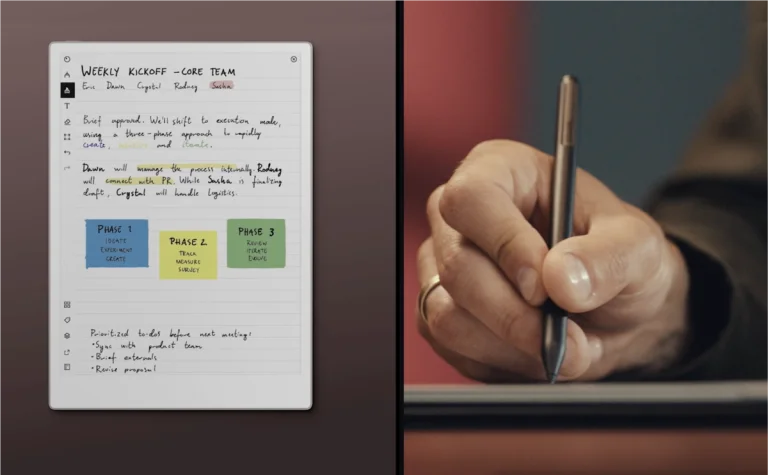 WEEKLY KICKOFF – CORE TEAM
Eric Dawn Crystal Rodney Sasha
Brief approved. We'll shift to execution mode,
using a three-phase approach to rapidly
create, and iterate.
Dawn will manage the process internally. Rodney
will connect with PR. While Sasha is finalizing
draft, Crystal will handle logistics.
PHASE 1
IDEATE
EXPERIMENT
CREATE
PHASE 2
TEACH
MEASURE
SURVEY
PHASE 3
REVIEW
ITERATE
DRIVE
Prioritized to-dos before next meeting!
• Sync with product team
• Brief externals
• Revise proposal